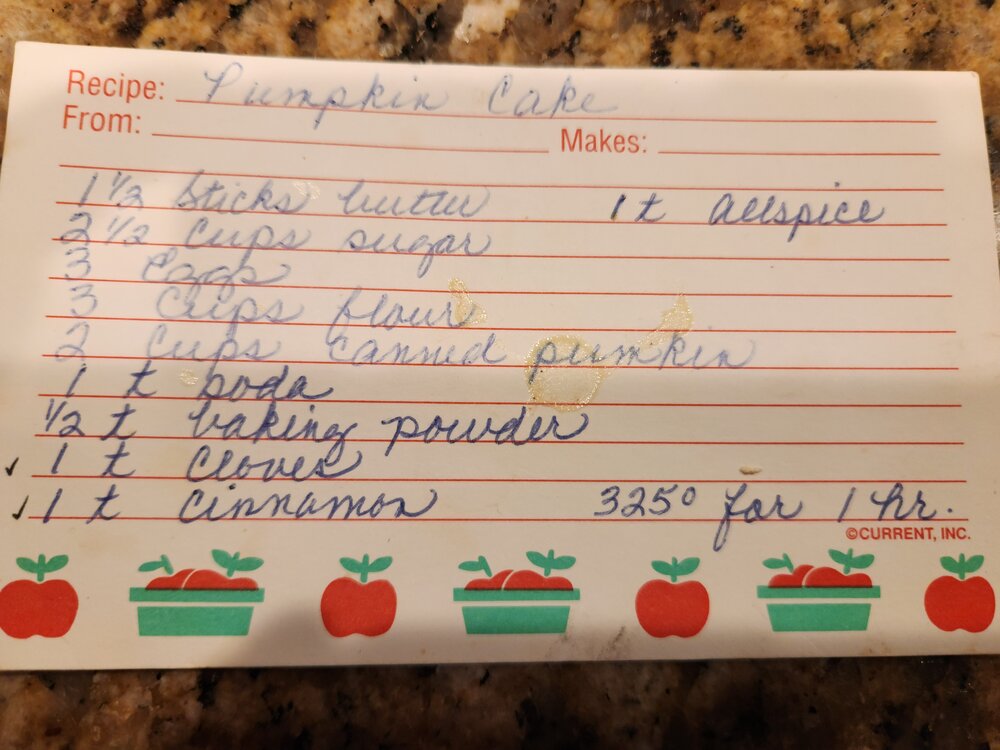 Recipe: Pumpkin Cake
From: Makes:
1 1/2 sticks butter 1 t allspice
2 1/2 cups sugar
3 Eggs
3 Cups flour
2 Cups canned pumpkin
1 t soda
1/2 t baking powder
✓ 1 t cloves
✓ 1 t cinnamon 325° for 1 hr.
©CURRENT, INC.